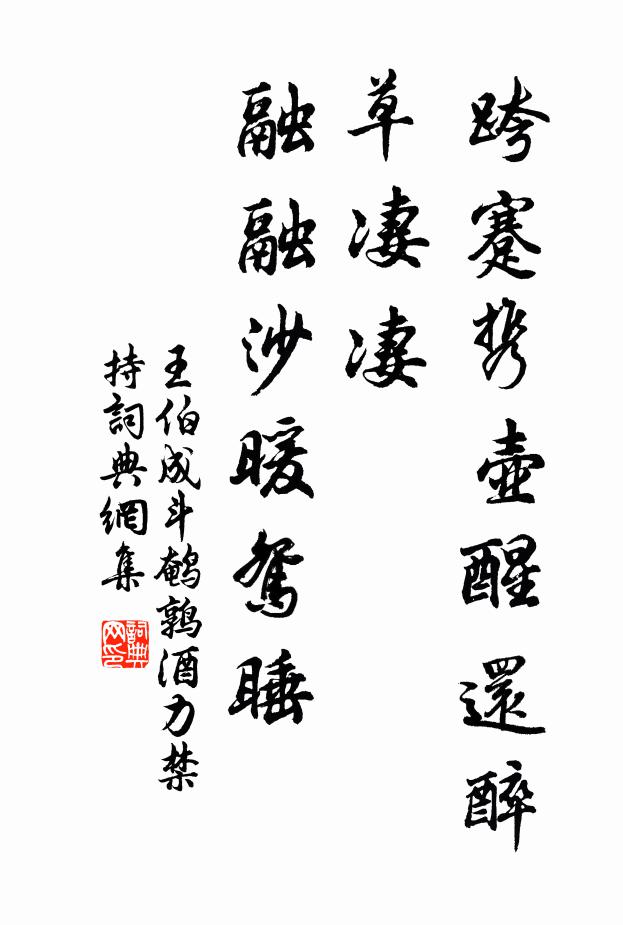 跨蹇携壺醒還醉
草淒淒
融融沙暖鴛睡
王伯成斗鹌鹑酒力禁
持詞典網集
詞典网印